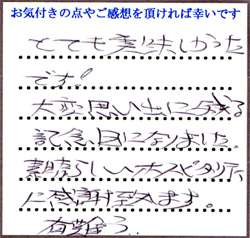 お気付きの点やご感想を頂ければ幸いです
とても美味しかった
です!
大変思い出に残る
記念日になりました.
素晴らしいホスピタリティ
に感謝致します。
有難う.